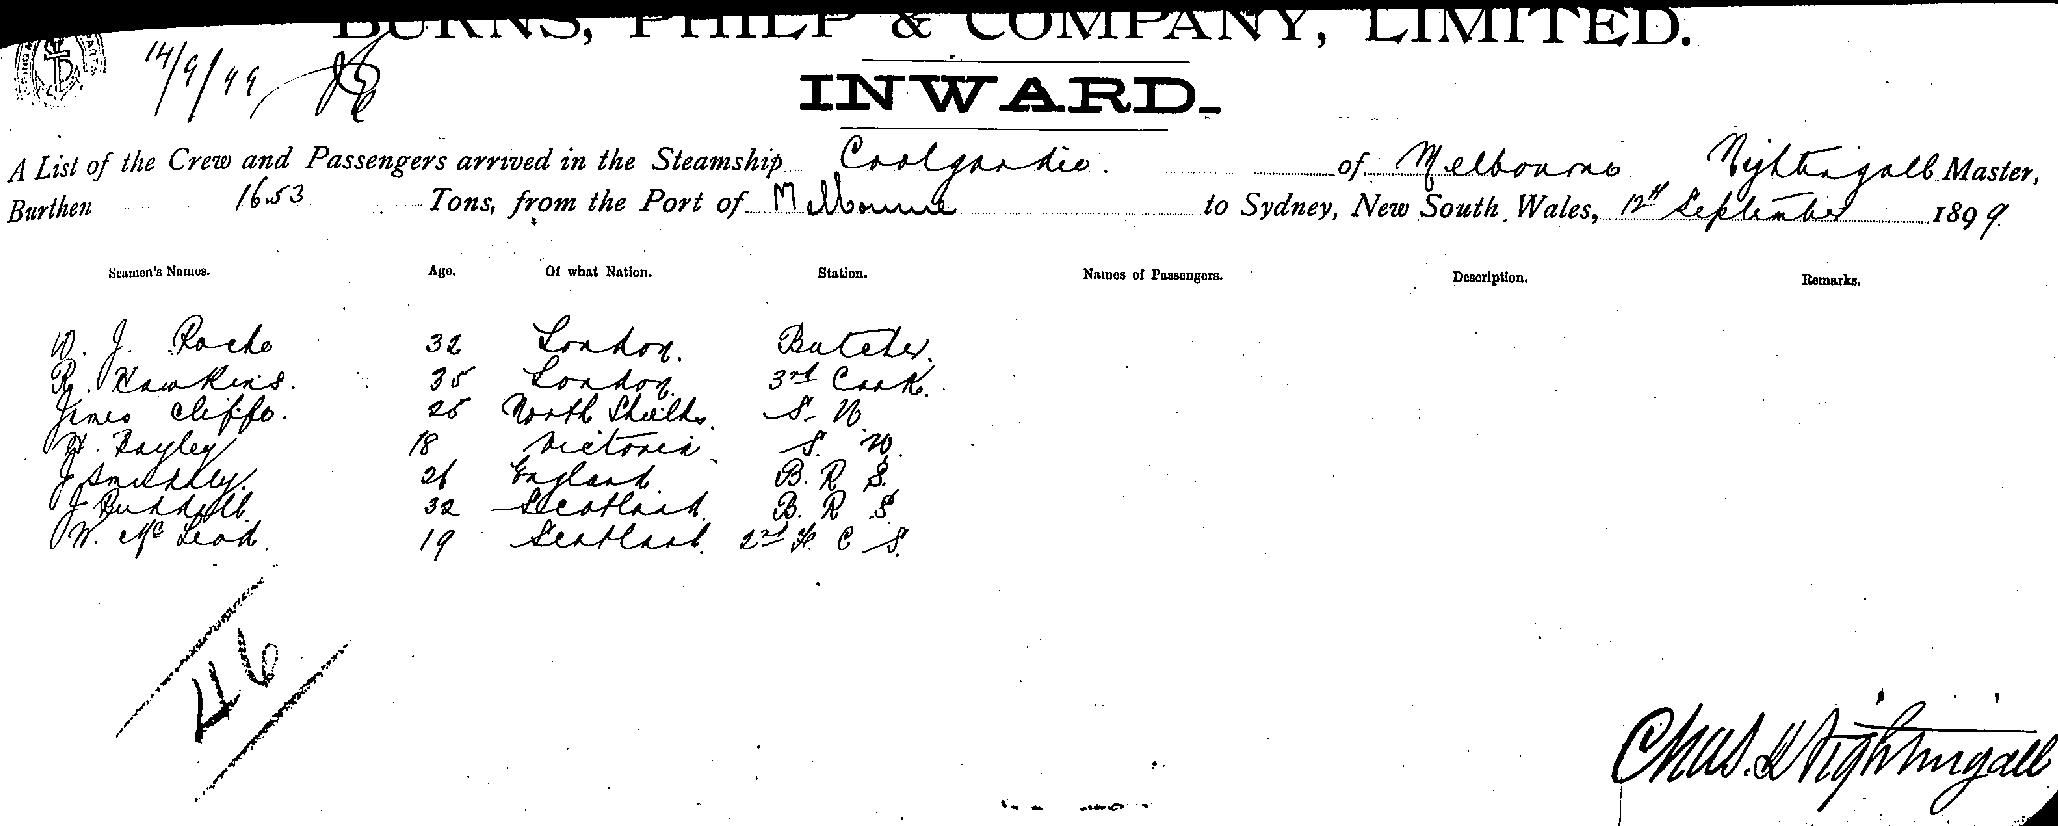 BURNS, PHILP & COMPANY, LIMITED.
14/9/99
INWARD.
A List of the Crew and Passengers arrived in the Steamship Coolgardie. of Melbourne Nightingall Master,
Burthen 1653 Tons, from the Port of Melbourne to Sydney, New South Wales, 12th September 1899
Seamen's Names. Age. Of what Nation. Station. Names of Passengers. Description. Remarks.
W. J. Roche 32 London. Butcher.
R. Hawkins. 35 London. 3rd Cook.
James Cliffe. 25 North Shields. S. W.
H. Bayley 18 Victoria. S. W.
J. Smedley. 26 England. B. R S.
J. 32 Scotland. B. R S.
W. McLeod. 19 Scotland. 2nd C S.
46
Chas. Nightingall